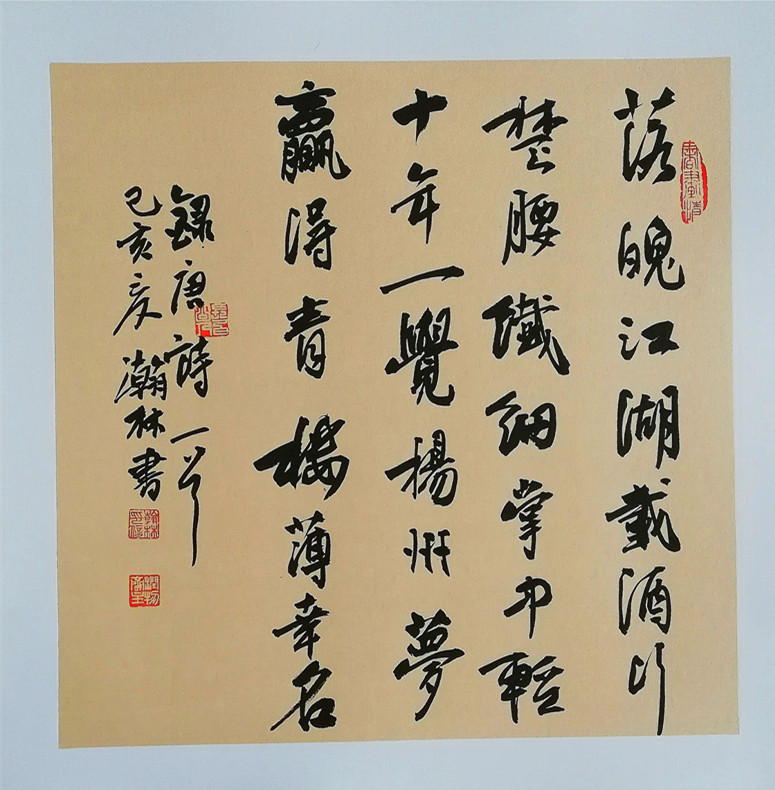 落魄江湖載酒行
楚腰纖細掌中輕
十年一覺楊州夢
贏得青樓薄幸名
錄唐詩一首
己亥夏瀚林書